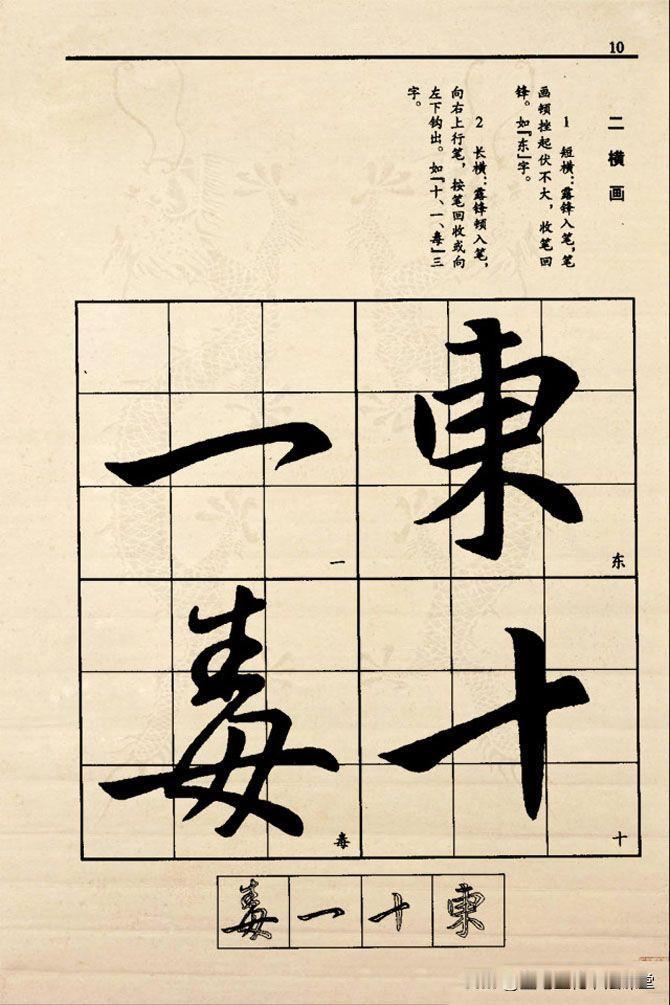 10
二 横画
1 短横：露锋入笔，笔
画顿挫起伏不大，收笔回
锋。如『东』字。
2 长横：露锋顿入笔，
向右上行笔，按笔回收或向
左下钩出。如『十、一、毒』三
字。
東
东
十
十
一
一
毒
毒
東
十
一
毒